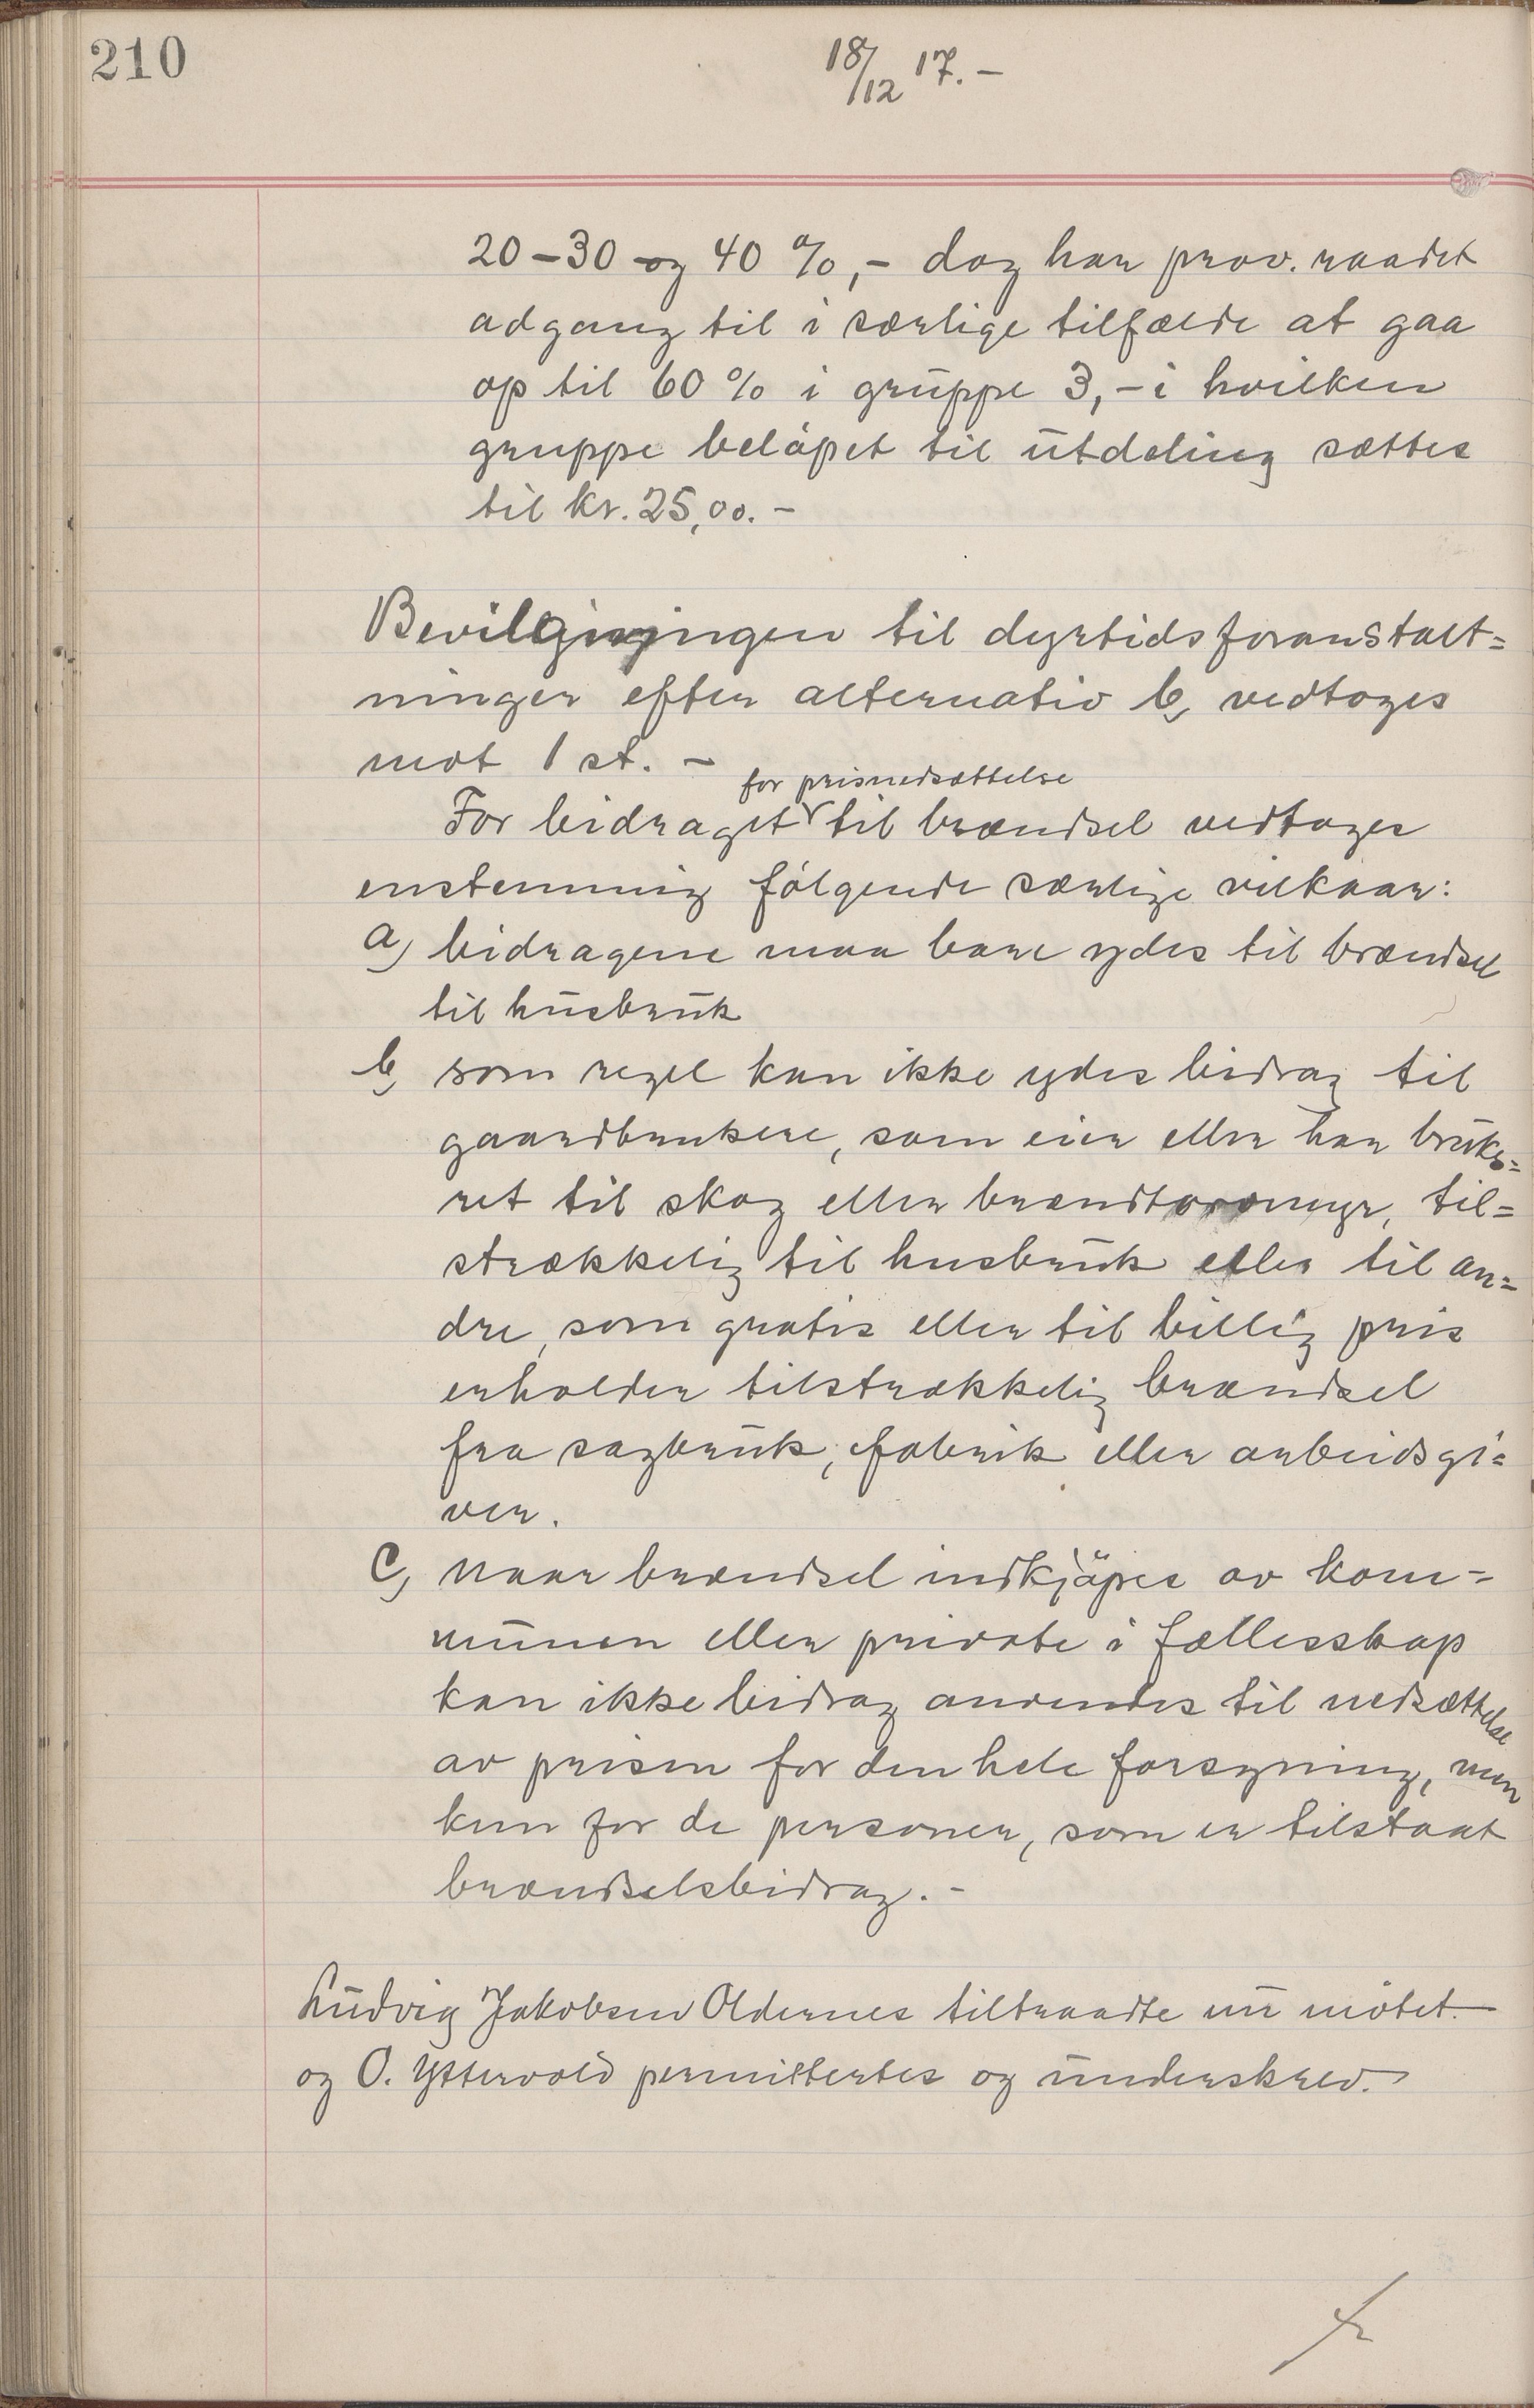 210
18/12 17. -
20-30 og 40 %,- dog har prov. raadet
adgang til i særlige tilfælde at gaa
op til 60 % i gruppe 3,- i hvilken
gruppe beløpet til utdeling sættes
til kr. 25,00. -
Bevilgningen til dyrtidsforanstalt=
ninger efter alternativ b, vedtoges
mot 1 st. -
for prisnedsættelse
For bidraget til brændsel vedtoges
enstemmig følgende særlige vilkaar:
a, bidragene maa bare ydes til brændsel
til husbruk
b, som regel kan ikke ydes bidrag til
gaardbrukere, som eier eller har bruks=
ret til skog eller brændtorvmyr, til=
strækkelig til husbruk eller til an=
dre, som gratis eller til billig pris
erholder tilstrækkelig brændsel
fra sagbruk, fabrik eller arbeidsgi=
ver.
c, naar brændsel indkjøpes av kom=
munen eller private i fællesskap
kan ikke bidrag anvendes til nedsættelse
av prisen for den hele forsyning, men
kun for de personer, som er tilstaat
brændselsbidrag. -
Ludvig Jakobsen Oldernes tiltraadte nu møtet. -
og O. Yttervold permittertes og underskrev.